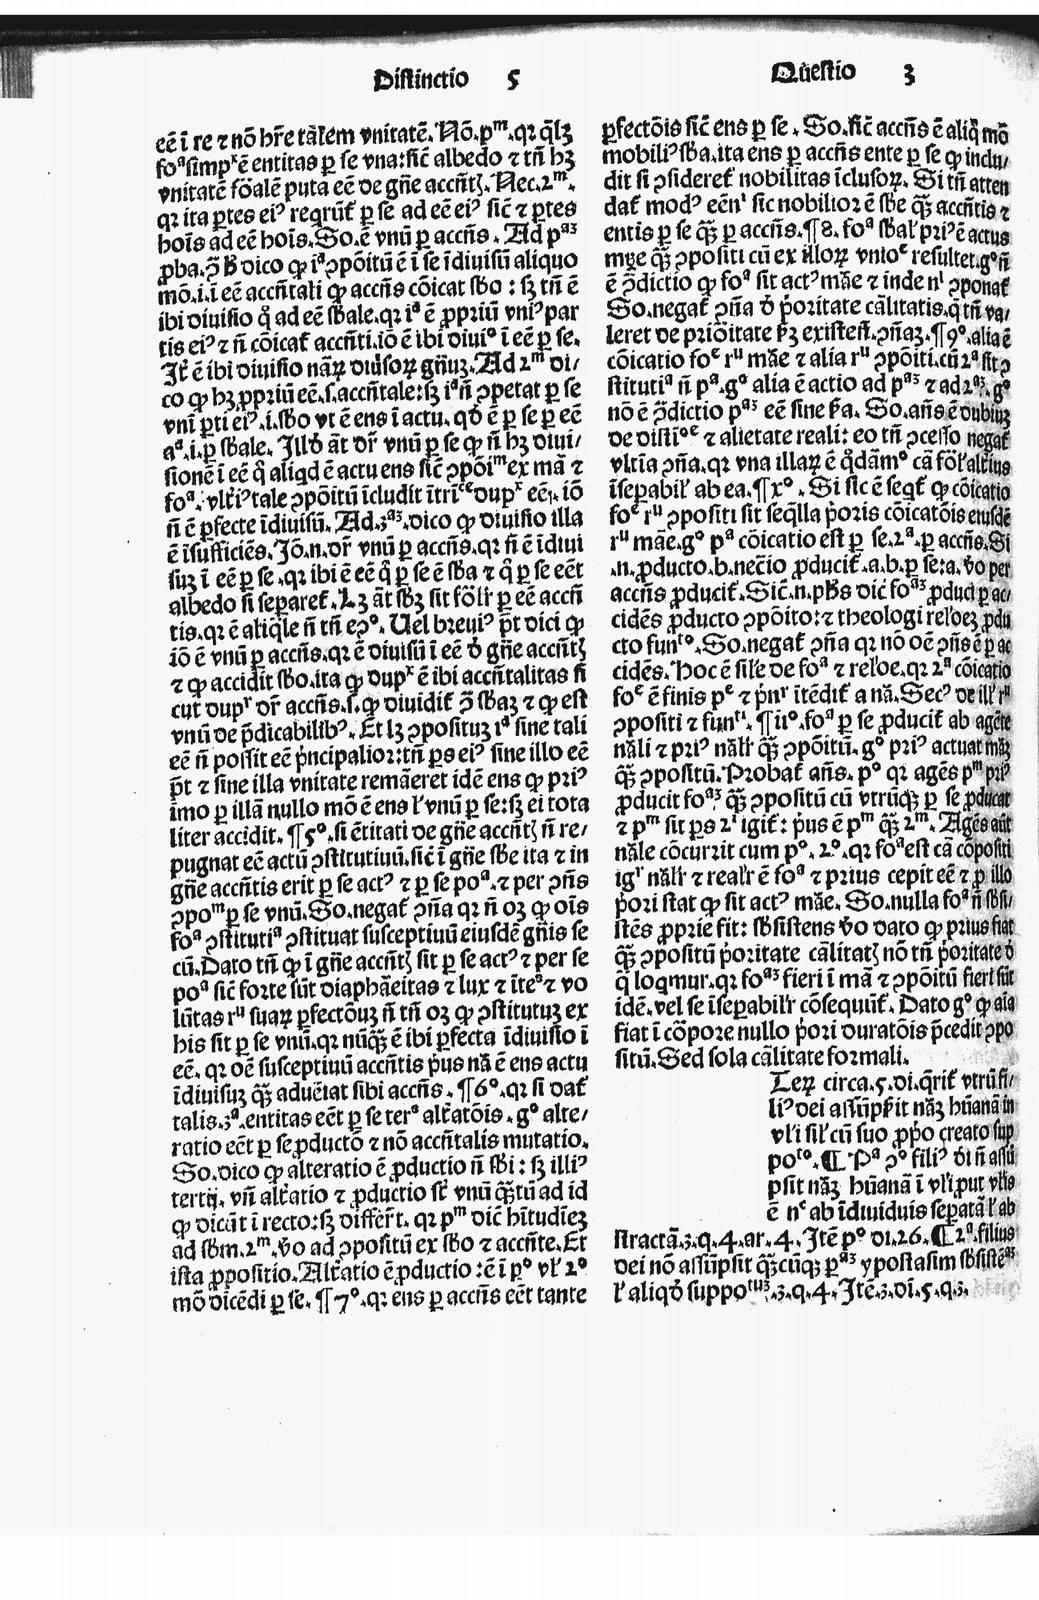 Distinctio 5
Q̄uestio 3
eē ī re ⁊ nō hr̄e tālem vnitatē. Nō. pᵐ. qꝛ ql̄ꝫ
foᵃ simpˣ ē entitas ꝑ se vna: sic̄ albedo ⁊ tn̄ hꝫ
vnitatē fōalē puta eē de gn̄e accn̄tꝭ. Nec. 2ᵐ.
qꝛ ita ꝑtes eiꝰ reqrūt̄ ꝑ se ad eē eiꝰ sic̄ ⁊ ꝑtes
hoīs ad eē hoīs. So. ē vnū ꝑ accn̄s. Ad pᵃꝫ
ꝓba. ꝯ̄ hͦ dico ꝙ iᵃ ꝯpōitū ē ī se īdiuisū aliquo
mō. i. ī eē accn̄tali ꝙ accn̄s cōicat sb̄o : sꝫ tn̄ ē
ibi diuisio q̄ ad eē sb̄ale. qꝛ iᵃ ē ꝓpriū vniꝰ par
tis eiꝰ ⁊ n̄ cōicat̄ accn̄ti. iō ē ibi diuiᵒ ī eē ꝑ se.
It̄ ē ibi diuisio nāꝝ diūsoꝝ gn̄uꝫ. Ad 2ᵐ di/
co ꝙ hꝫ ꝓpriū eē. s. accn̄tale: sꝫ iᵃ n̄ ꝯpetat ꝑ se
vni ꝑti eiꝰ. i. sb̄o vt ē ens ī actu. qd̄ ē ꝑ se ꝑ eē
aᵃ. i. ꝑ sb̄ale. Illd̄ āt dr̄ vnū ꝑ se ꝙ n̄ hꝫ diui/
sionē ī eē q̄ aliqd ē actu ens sic̄ ꝯpōiᵐ ex mā ⁊
foᵃ. vlt̄iꝰ tale ꝯpōitū īcludit ītrīᶜᵉ dupˣ eē. iō
n̄ ē ꝑfecte īdiuisū. Ad. 3ᵃꝫ. dico ꝙ diuisio illa
ē īsufficiēs. Iō. n. dr̄ vnū ꝑ accn̄s. qꝛ n̄ ē īdiui
suꝫ ī eē ꝑ se. qꝛ ibi ē eē q̄ ꝑ se ē sb̄a ⁊ q̄ ꝑ se eēt
albedo si separet̄. Lꝫ āt sb̄ꝫ sit fōlr̄ ꝑ eē accn̄
tis. qꝛ ē aliq̄le n̄ tn̄ eꝯᵒ. Uel breuiꝰ pt̄ dici ꝙ
iō ē vnū ꝑ accn̄s. qꝛ ē diuisū ī eē d̄ gn̄e accn̄tꝭ
⁊ ꝙ accidit sb̄o. ita ꝙ dupˣ ē ibi accn̄talitas si
cut dupʳ dr̄ accn̄s. s. ꝙ diuidit̄ ꝯ̄ sb̄aꝫ ⁊ ꝙ est
vnū de p̄dicabilibꝰ. Et lꝫ ꝯpositуꝫ iᵃ sine tali
eē n̄ possit eē p̄ncipalior: tn̄ ꝑs eiꝰ sine illo eē
pt̄ ⁊ sine illa vnitate remāeret idē ens ꝙ priꝰ
īmo ꝑ illā nullo mō ē ens l̄ vnū ꝑ se: sꝫ ei tota
liter accidit. ¶5ᵒ. si ētitati de gn̄e accn̄tꝭ n̄ re/
pugnat eē actū ꝯstitutiuū. sic̄ ī gn̄e sb̄e ita ⁊ in
gn̄e accn̄tis erit ꝑ se actꝰ ⁊ ꝑ se poᵃ. ⁊ per ꝯn̄s
ꝯpoᵐ ꝑ se vnū. So. negat̄ ꝯn̄a qꝛ n̄ oꝫ ꝙ oīs
foᵃ ꝯstitutiᵃ ꝯstituat susceptiuū eiusdē gn̄is se
cū. Dato tn̄ ꝙ ī gn̄e accn̄tꝭ sit ꝑ se actꝰ ⁊ per se
poᵃ sic̄ forte sūt diaphāeitas ⁊ lux ⁊ īteᵃ ⁊ vo
lūtas rᵘ suaꝝ ꝑfectōuꝫ n̄ tn̄ oꝫ ꝙ ꝯstitutuꝫ ex
his sit ꝑ se vnū. qꝛ nūꝙ̄ ē ibi ꝑfecta īdiuisio ī
eē. qꝛ oē susceptiuū accn̄tis p̄us nā ē ens actu
īdiuisuꝫ ꝙ̄ aduēiat sibi accn̄s. ¶6ᵒ. qꝛ si dat̄
talis. 3ᵃ. entitas eēt ꝑ se terᵃ alt̄atōis. gᵒ alte/
ratio eēt ꝑ se ꝓductō ⁊ nō accn̄talis mutatio.
So. dico ꝙ alteratio ē ꝓductio n̄ sb̄i : sꝫ illiꝰ
tertij. vn̄ alt̄atio ⁊ ꝓductio st̄ vnū ꝙ̄tū ad id
ꝙ dicūt ī recto: sꝫ differr̄t. qꝛ pᵐ dic̄ hītudīeꝫ
ad sb̄m. 2ᵐ. v̄o ad ꝯpositū ex sb̄o ⁊ accn̄te. Et
ista ꝓpositio. Alt̄atio ē ꝓductio : ē ī pᵒ vl̄ 2ᵒ
mō dicēdi ꝑ se. ¶7ᵒ. qꝛ ens ꝑ accn̄s eēt tante
ꝑfectōis sic̄ ens ꝑ se. So. sic̄ accn̄s ē aliq̄ mō
mobiliꝰ sb̄a. ita ens ꝑ accn̄s ente ꝑ se ꝙ inclu/
dit si ꝯsideret̄ nobilitas īclusoꝝ. Si tn̄ atten
dat̄ modꝰ eēnˡ sic nobilior ē sb̄e ꝙ̄ accn̄tis ⁊
entis ꝑ se ꝙ̄ ꝑ accn̄s. ¶8. foᵃ sb̄al̄ priꝰ ē actus
mꝛe ꝙ̄ ꝯpositi cū ex illoꝝ vnioᵉ resultet. gᵒ n̄
ē ꝯ̄dictio ꝙ foᵃ sit actꝰ māe ⁊ inde nˡ ꝯponat̄
So. negat̄ ꝯn̄a d̄ p̄oritate cālitatis. q̄ tn̄ va/
leret de priōitate p̄ꝫ existeñ. ꝯn̄aꝫ. ¶9ᵒ. alia ē
cōicatio foᵉ rᵘ māe ⁊ alia rᵘ ꝯpōiti. cū 2ᵃ sit ꝯ
stitutiᵃ n̄ pᵃ. gᵒ alia ē actio ad pᵃꝫ ⁊ ad 2ᵃꝫ. gᵒ
nō ē ꝯ̄dictio pᵃꝫ eē sine 2̄a. So. an̄s ē dubiuꝫ
de distiᵒᵉ ⁊ alietate reali: eo tn̄ ꝯcesso negat̄
vltīa ꝯn̄a. qꝛ vna illaꝝ ē q̄dāmᵒ cā fōl̄ alt̄ius
īsepabil̄ ab ea. ¶xᵒ. Si sic ē seqt̄ ꝙ cōicatio
foᵉ rᵘ ꝯpositi sit seq̄lla p̄oris cōicatōis eiusdē
rᵘ māe. gᵒ pᵃ cōicatio est ꝑ se. 2ᵃ. ꝑ accn̄s. Si
.n. ꝓducto. b. necīo ꝓducit̄. a. b. ꝑ se: a. v̄o per
accn̄s ꝓducit̄. Sic̄. n. ph̄s dic̄ foᵃꝫ ꝓduci ꝑ ac/
cidēs ꝓducto ꝯpōito: ⁊ theologi rel̄oeꝫ ꝓdu
cto funᵗᵒ. So. negat̄ ꝯn̄a qꝛ nō oē ꝯn̄s ē ꝑ ac
cidēs. Hoc ē sil̄e de foᵃ ⁊ rel̄oe. qꝛ 2ᵃ cōicatio
foᵉ ē finis pᵉ ⁊ p̄nʳ ītēdit̄ a nā. Secꝰ de ill̄ rᵘ
ꝯpositi ⁊ funᵗⁱ. ¶11ᵒ. foᵃ ꝑ se ꝓducit̄ ab agēte
nāli ⁊ priꝰ nālr̄ ꝙ̄ ꝯpōitū. gᵒ priꝰ actuat māꝫ
ꝙ̄ ꝯpositū. Probat̄ an̄s. pᵒ qꝛ agēs pᵐ priꝰ
ꝓducit foᵃꝫ ꝙ̄ ꝯpositū cū vtrūqꝫ ꝑ se ꝓducat
⁊ pᵐ sit ꝑs 2ˡ igit̄: p̄us ē pᵐ ꝙ̄ 2ᵐ. Agēs aūt
nāle cōcurrit cum pᵒ. 2ᵒ. qꝛ foᵃ est cā cōpositi
igʳ nālr̄ ⁊ realr̄ ē foᵃ ⁊ prius cepit eē ⁊ ꝓ illo
p̄ori stat ꝙ sit actꝰ māe. So. nulla foᵃ n̄ sb̄si/
stēs ꝓprie fit: sb̄sistens v̄o dato ꝙ prius fiat
ꝙ̄ ꝯpositū p̄oritate cālitatꝭ nō tn̄ p̄oritate d̄
q̄ loqmur. qꝛ foᵃꝫ fieri ī mā ⁊ ꝯpōitū fieri sūt
idē. vel se īsepabilr̄ cōsequūt̄. Dato gᵒ ꝙ aīa
fiat ī cōpore nullo p̄ori duratōis p̄cedit ꝯpo
situ. Sed sola cālitate formali.
Terꝫ circa. 5. di. qrit̄ vtrū fi/
liꝰ dei assūpsit nāꝫ hūanā in
vl̄i sil̄ cū suo ꝓp̄o creato sup
poᵗᵒ. ¶ Pᵃ ꝯᵒ filiꝰ di n̄ assū
psit nāꝫ hūanā ī vl̄i ꝓut vl̄is
ē nᶜ ab īdiuiduis sepatā l̄ ab
stractā. 3. q. 4. ar. 4. Itē pᵒ di. 26. ¶2ᵃ filius
dei nō assūpsit ꝙ̄cūqꝫ ꝑᵃꝫ ypostasim sb̄sistēᵃꝫ
l̄ aliqd̄ suppoᵗᵘꝫ. 3. q. 4. Itē. 3. di. 5. q. 3.